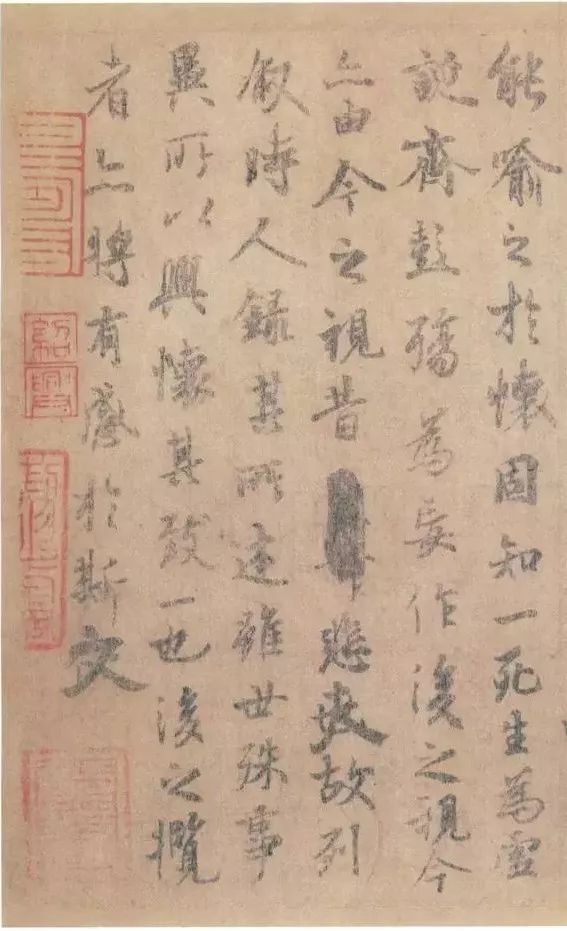 能喻之於懷固知一死生為虛
誕齊彭殤為妄作後之視今
亦由今之視昔悲夫故列
敘時人錄其所述雖世殊事
異所以興懷其致一也後之攬
者亦將有感於斯文
紹興